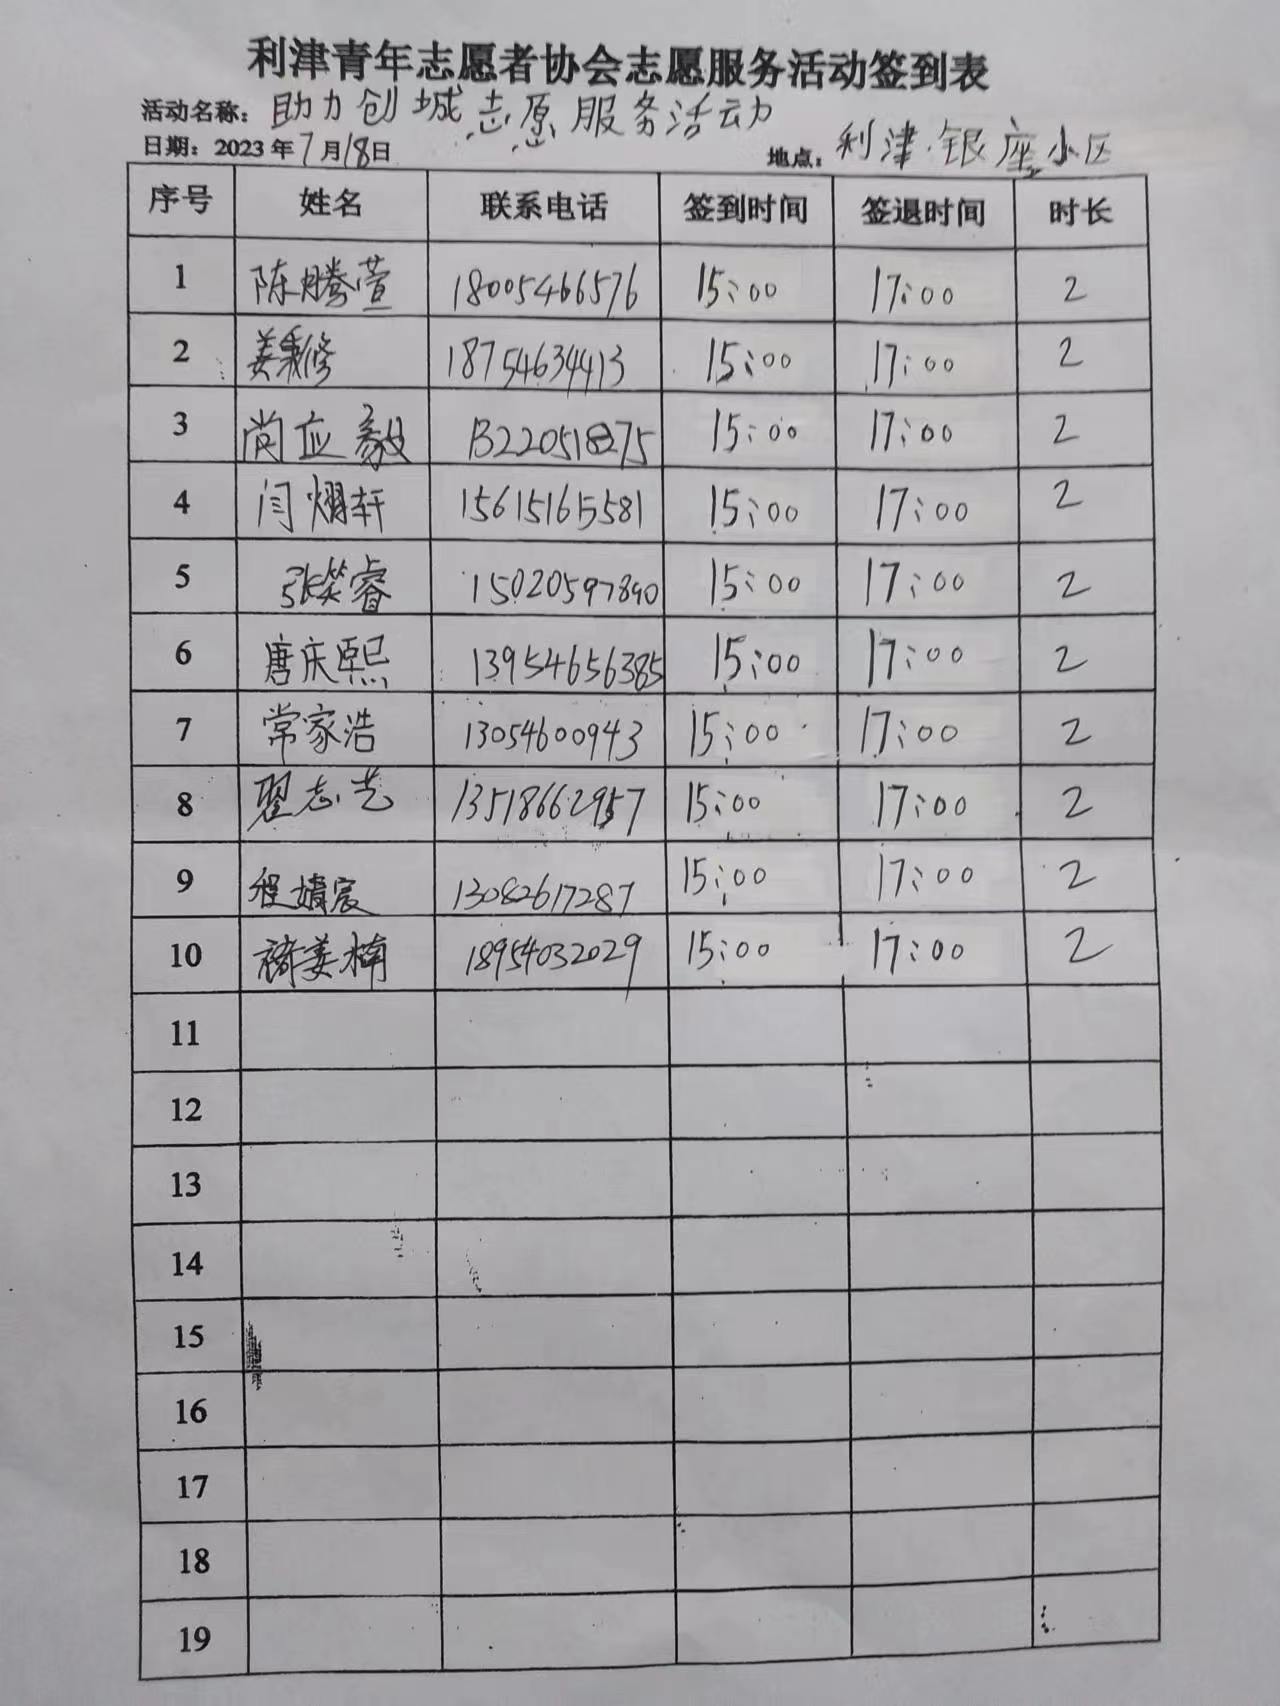 利津青年志愿者协会志愿服务活动签到表
活动名称：助力创城志愿服务活动
日期：2023年7月18日 地点：利津.银座小区
序号 姓名 联系电话 签到时间 签退时间 时长
1 陈腾萱 18005466576 15:00 17:00 2
2 姜秉修 18754634413 15:00 17:00 2
3 尚应毅 13220518275 15:00 17:00 2
4 闫熠轩 15615165581 15:00 17:00 2
5 张笑睿 15020597890 15:00 17:00 2
6 唐庆熙 13954656385 15:00 17:00 2
7 常家浩 13054600943 15:00 17:00 2
8 翟志艺 13518662957 15:00 17:00 2
9 程婧宸 13082617287 15:00 17:00 2
10 姜楠 18954032029 15:00 17:00 2
11
12
13
14
15
16
17
18
19